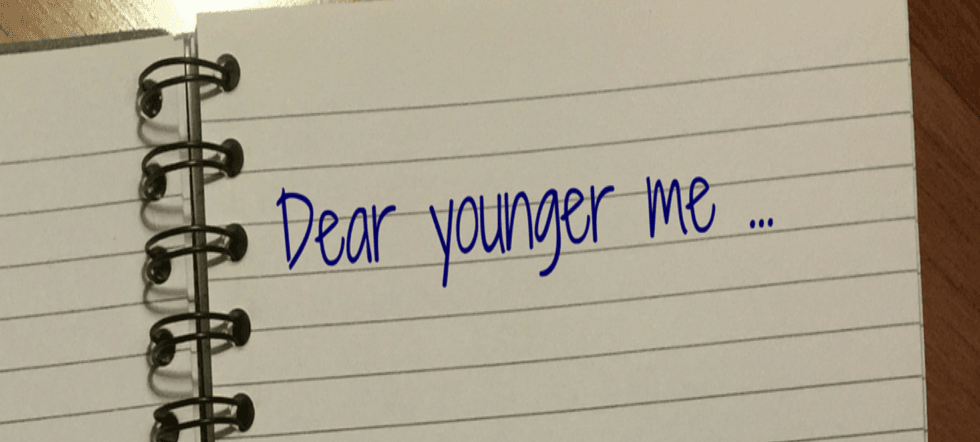 Dear younger me ...